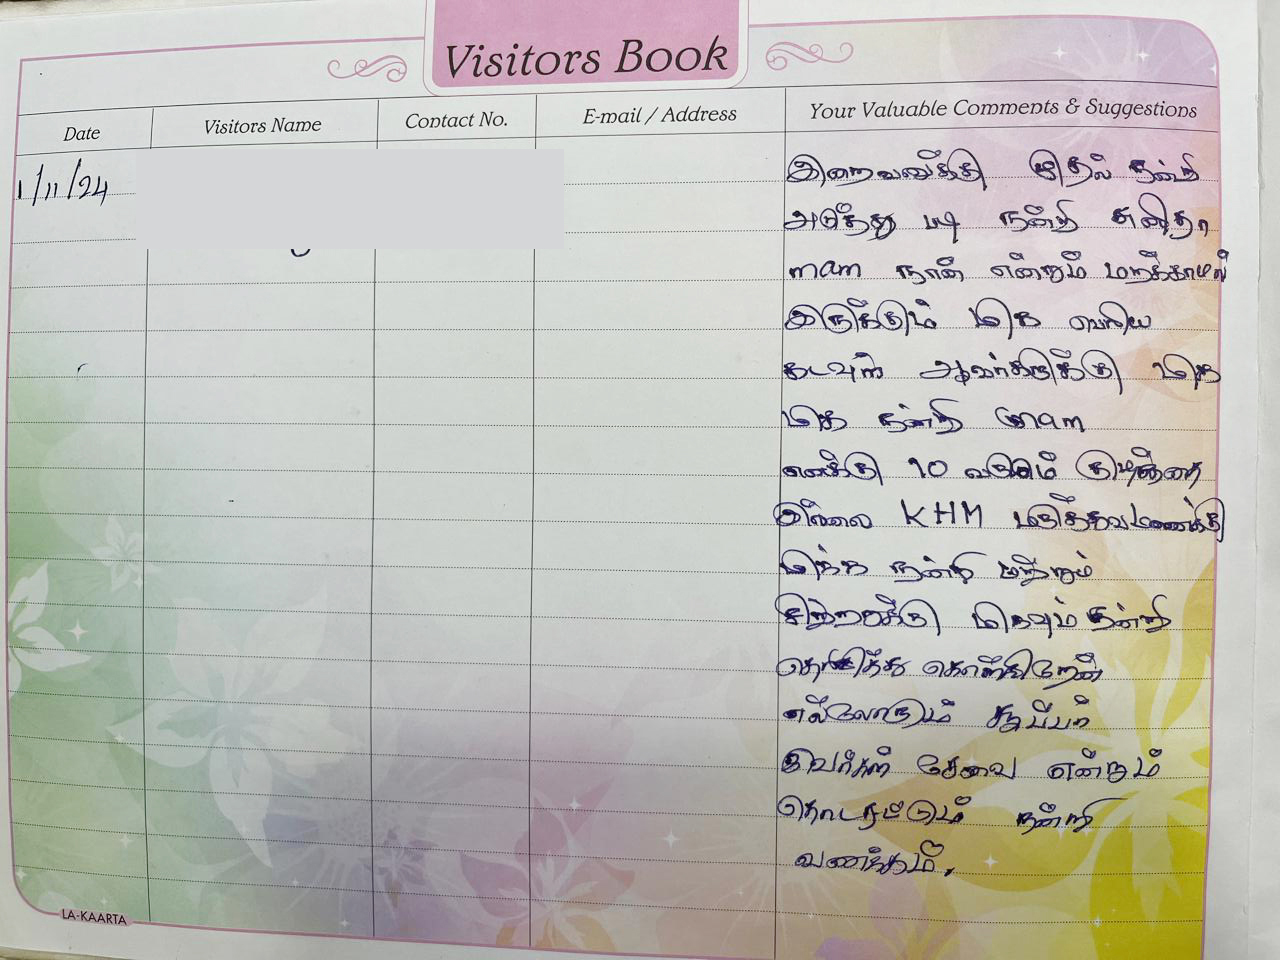 Visitors Book
Date Visitors Name Contact No. E-mail / Address Your Valuable Comments & Suggestions
1/11/24 இறைவனுக்கு முதல் நன்றி
அடுத்து படி நன்றி சுனிதா
mam நான் என்றும் மறக்காமல்
இருக்கும் மிக பெரிய
கடவுள் அவர்களுக்கு மிக
மிக நன்றி mam
எனக்கு 10 வருடம் குழந்தை
இல்லை KHM மருத்துவமணைக்கு
மிக்க நன்றி மற்றும்
மிகவும் நன்றி
தெரிவித்து கொள்கிறேன்
எல்லோரும் சூப்பர்
இவர்கள் சேவை என்றும்
தொடரட்டும் நன்றி
வணக்கம்.
LA-KAARTA